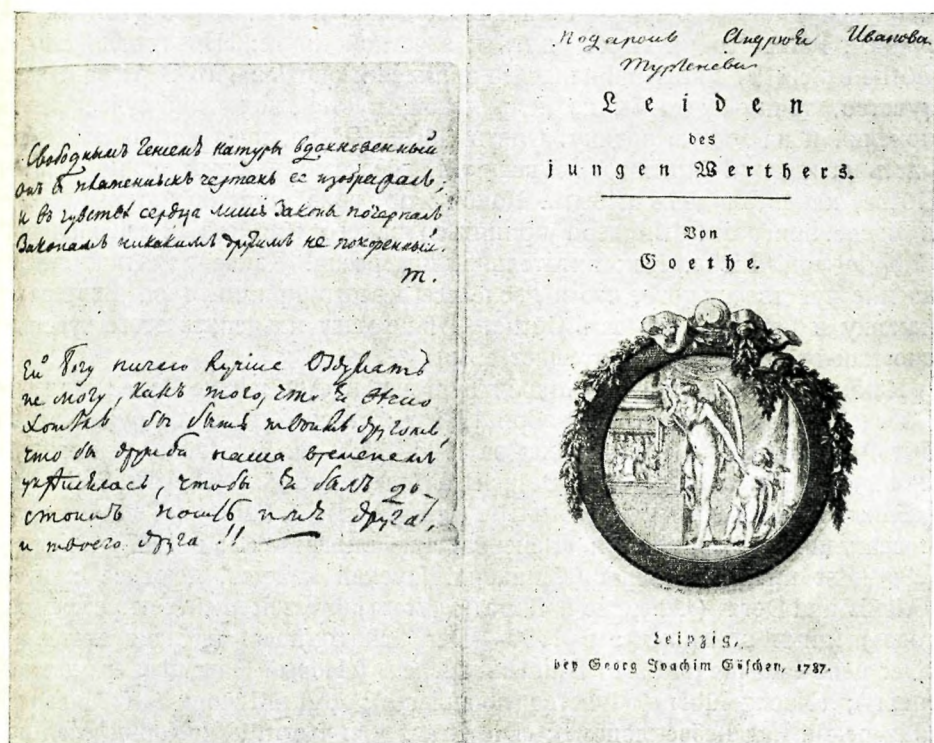 Свободнымъ Генiемъ натуры вдохновенный
онъ в пламенныхъ чертахъ ее изображалъ;
и въ чувствѣ сердца лишь Законы почерпалъ
Законамъ никакимъ другимъ не покоренный.
Т.
Ей Богу ничего лучше Вздумать
не могу, какъ того, что я вечно
хотѣлъ бы быть твоимъ другомъ,
что бы дружба наша временемъ
укрѣпилась, чтобы я былъ до-
стоинъ носить имя друга,
и твоего друга !!
Подарокъ Иванова
Тургенева
Leiden
des
jungen Werthers.
Von
Goethe.
Leipzig,
bey Georg Joachim Göschen, 1787.